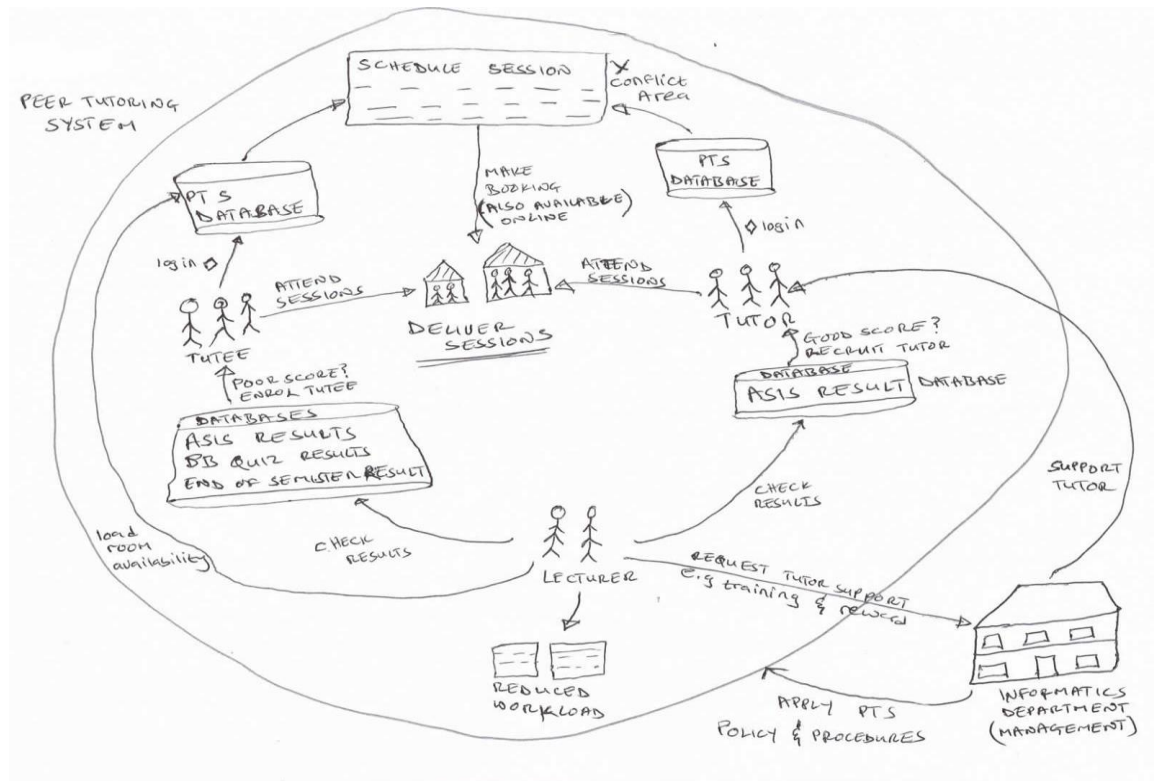 SCHEDULE SESSION
X
Conflict
Area
PEER TUTORING
SYSTEM
PTS
DATABASE
PTS
DATABASE
MAKE
BOOKING
(ALSO AVAILABLE)
ONLINE
login
login
ATTEND
SESSIONS
ATTEND
SESSIONS
TUTEE
DELIVER
SESSIONS
TUTOR
POOR SCORE?
ENROL TUTEE
GOOD SCORE?
RECRUIT TUTOR
DATABASES
ASIS RESULTS
BB QUIZ RESULTS
END OF SEMISTER RESULT
DATABASE
ASIS RESULT
DATABASE
SUPPORT
TUTOR
load
room
availability
CHECK
RESULTS
CHECK
RESULTS
LECTURER
REQUEST TUTOR SUPPORT
e.g training & reward
REDUCED
WORKLOAD
APPLY PTS
POLICY & PROCEDURES
INFORMATICS
DEPARTMENT
(MANAGEMENT)